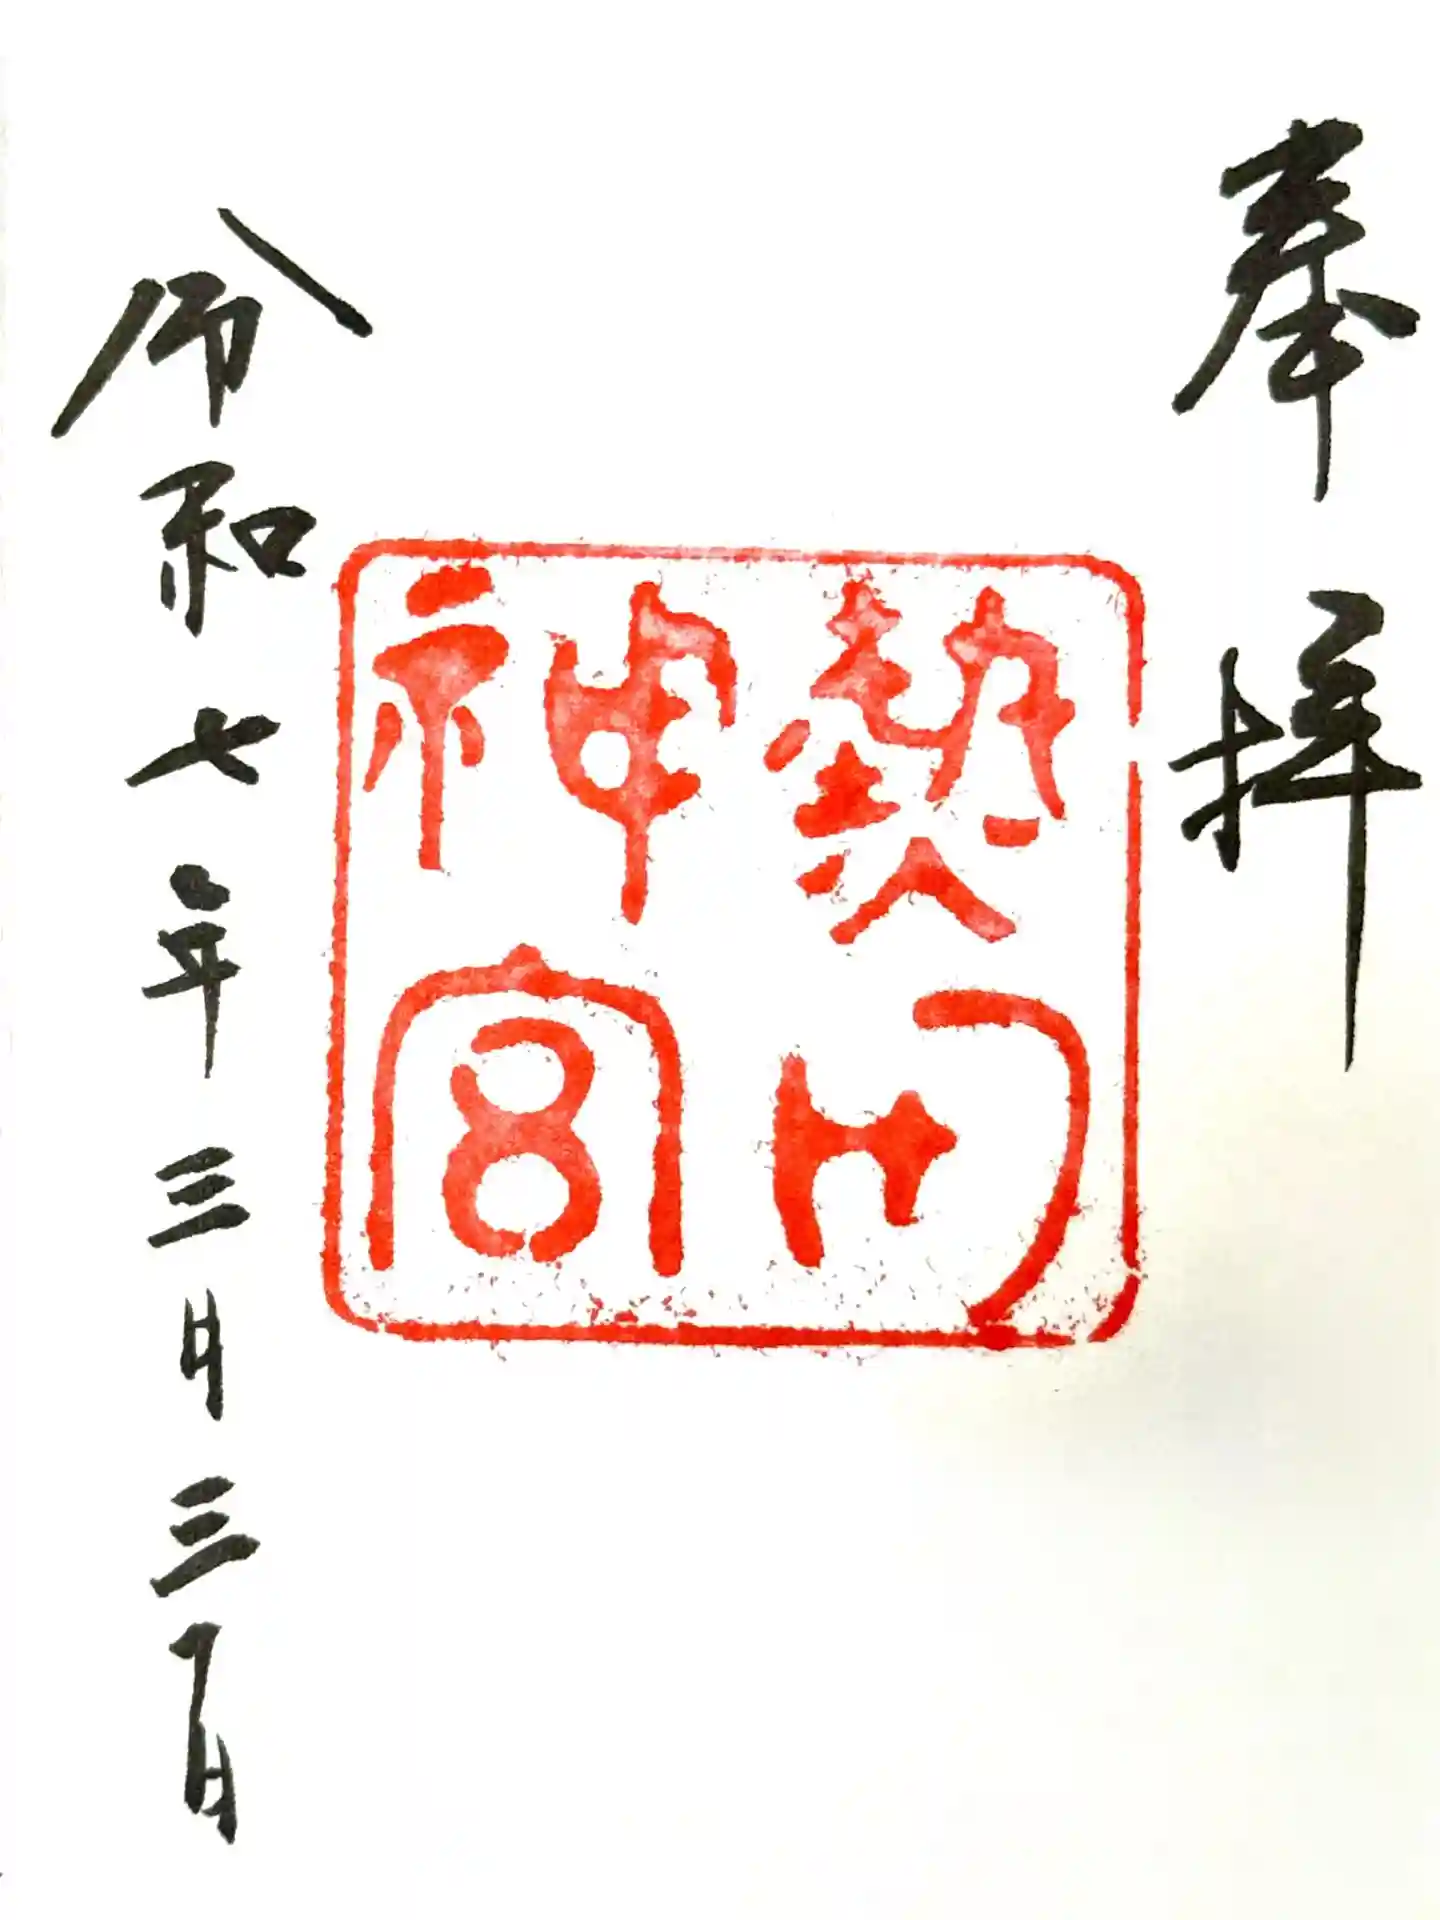 奉拝
熱田神宮
令和七年三月三日